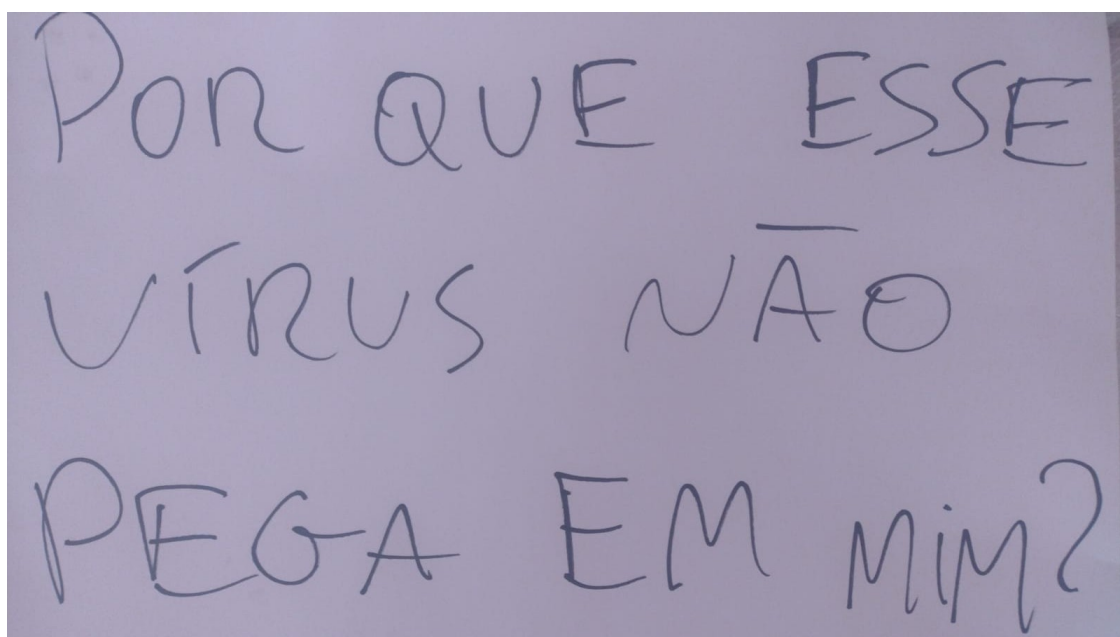 POR QUE ESSE
VÍRUS NÃO
PEGA EM MiM?